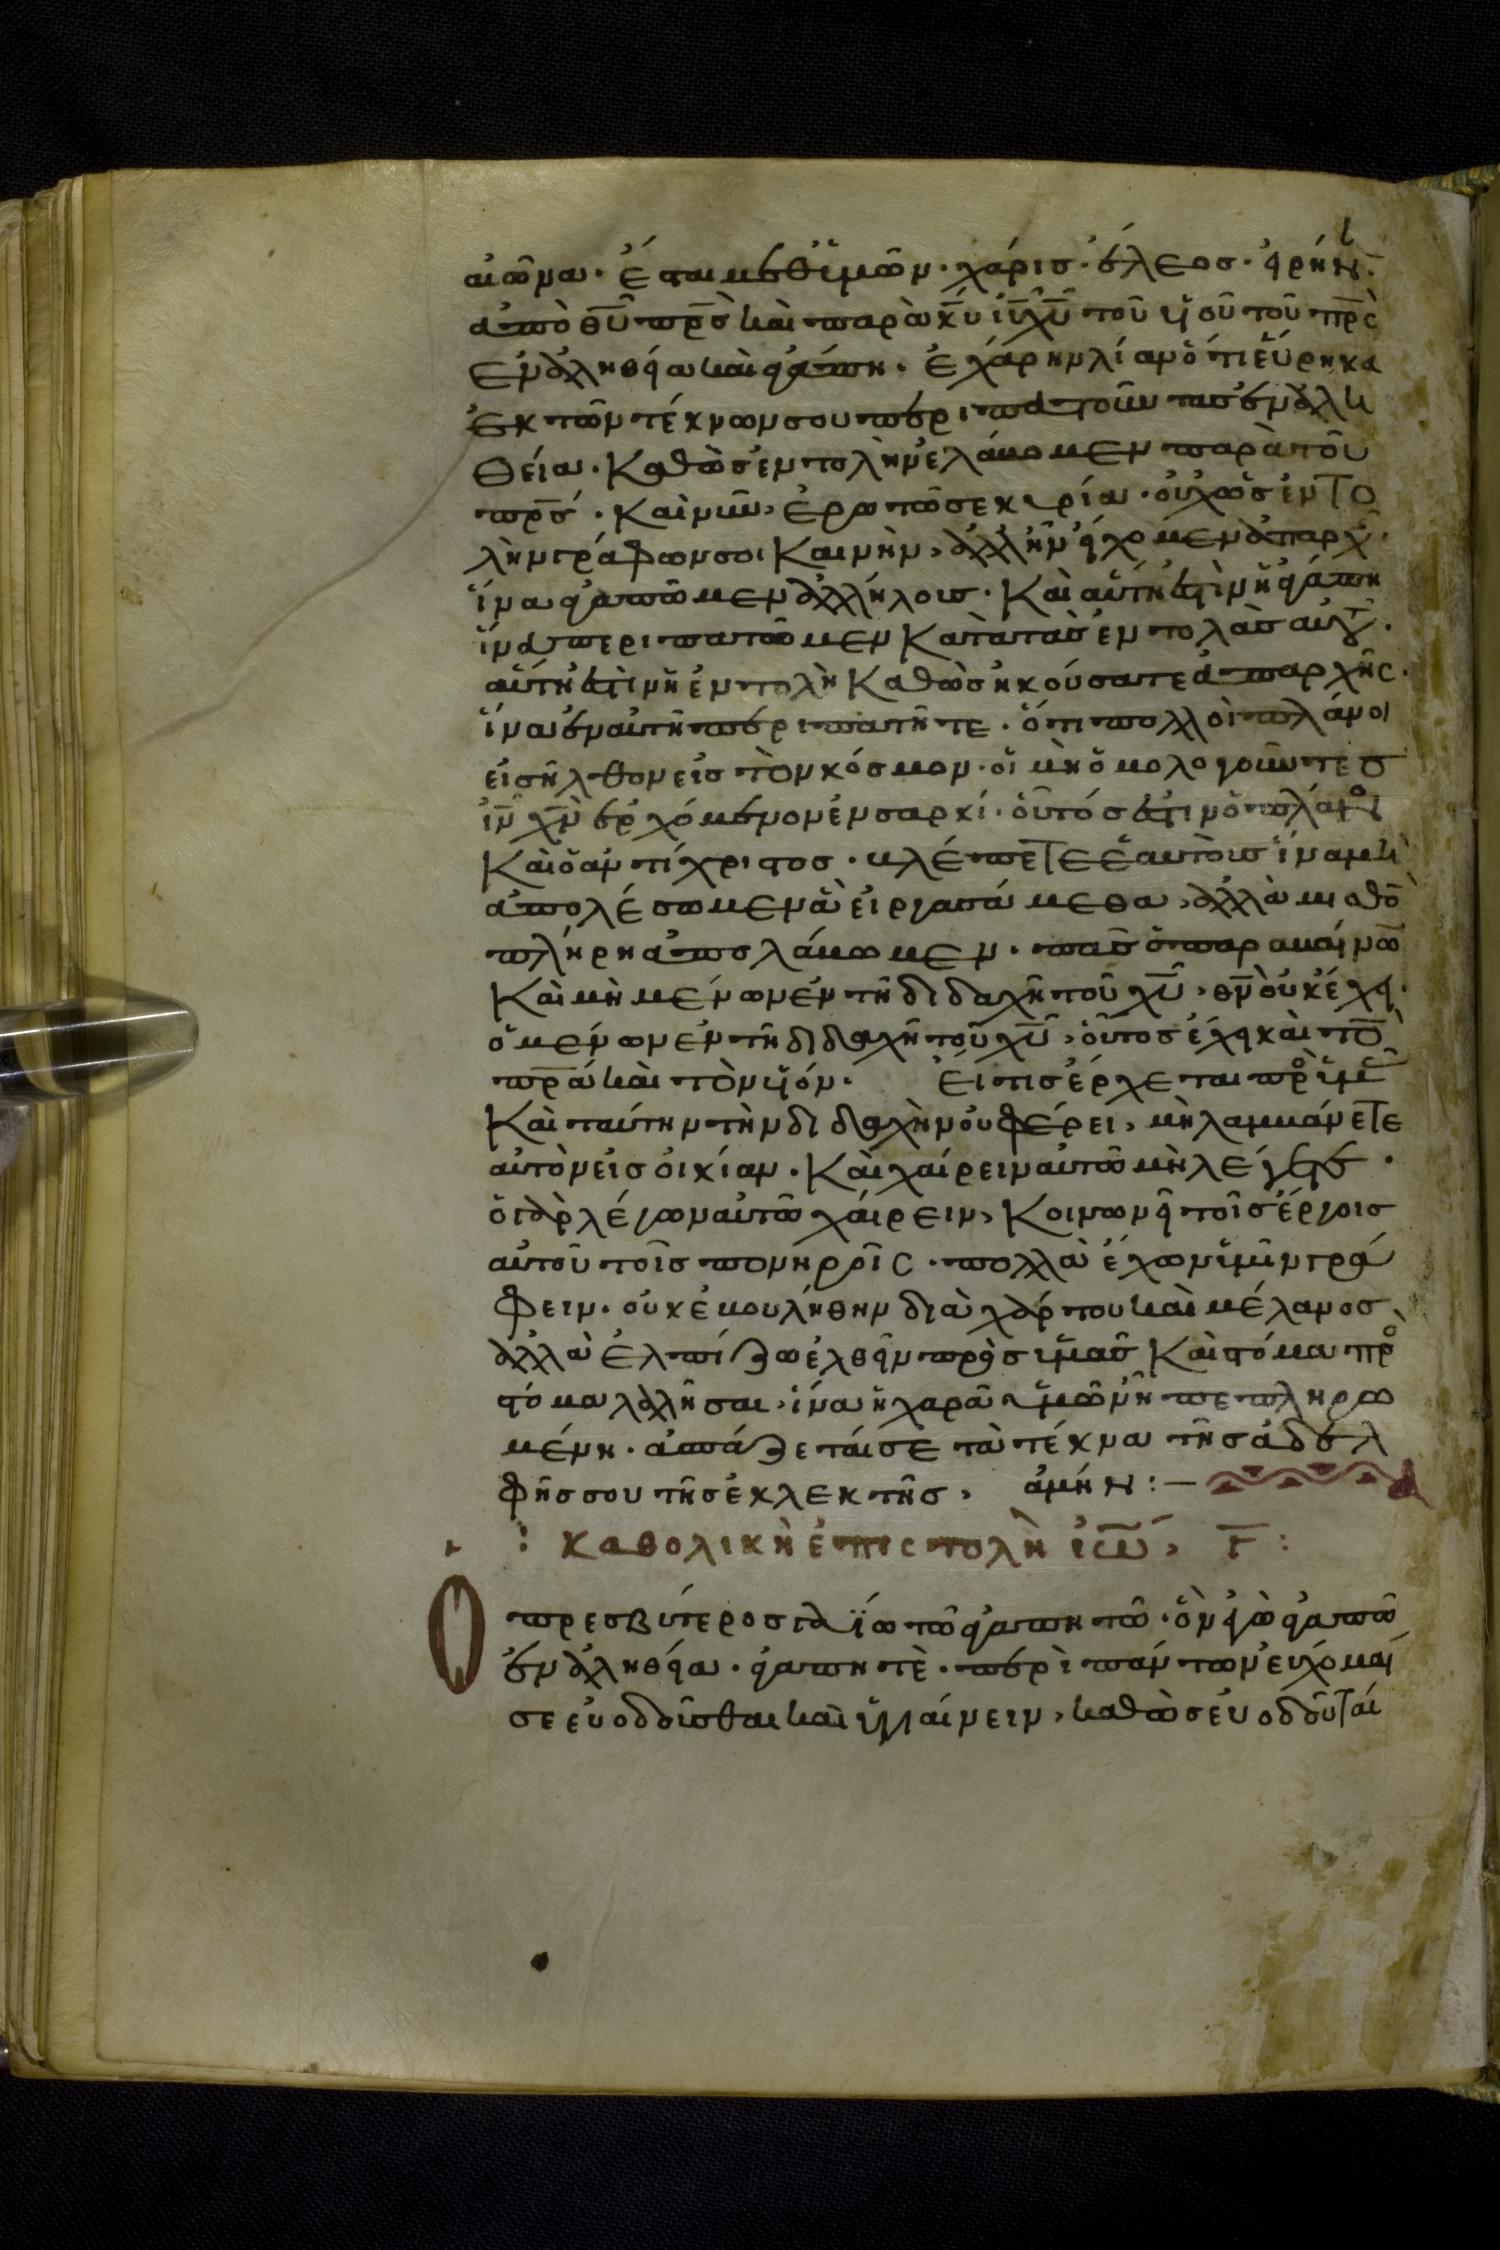 αἰῶνα· ἔσται μεθ' ἡμῶν· χάρις· ἔλεος· εἰρήνη·
ἀπὸ θ̅υ̅ π̅ρ̅ς̅ καὶ παρὰ κ̅υ̅ ἰ̅υ̅ χ̅υ̅ τοῦ υἱοῦ τοῦ π̅ρ̅ς̅
ἐν ἀληθεία καὶ ἀγάπη· ἐχάρην λίαν ὅτι εὕρηκα
ἐκ τῶν τέκνων σου περιπατοῦντας ἐν ἀλη
θεία· καθὼς ἐντολὴν ἐλάβομεν παρὰ τοῦ
π̅ρ̅ς̅· καὶ νῦν, ἐρωτῶ σε κυρία· οὐχ ὡς ἐντο
λὴν γράφων σοι καινὴν, ἀλλ' ἣν εἴχομεν ἀπαρχῆς·
ἵνα ἀγαπῶμεν ἀλλήλοις· καὶ αὕτη ἐστὶν ἡ ἀγάπη
ἵνα περιπατῶμεν κατὰ τὰς ἐντολὰς αὐτοῦ·
αὕτη ἐστὶν ἡ ἐντολὴ καθὼς ἠκούσατε ἀπαρχῆς·
ἵνα ἐν αὐτῆ περιπατῆτε· ὅτι πολλοὶ πλάνοι
εἰσῆλθον εἰς τὸν κόσμον· οἱ μὴ ὁμολογοῦντες
ἰ̅ν̅ χ̅ν̅ ἐρχόμενον ἐν σαρκί· οὗτός ἐστιν ὁ πλάνος
καὶ ὁ ἀντίχριστος· βλέπετε ἑαυτοὺς ἵνα μὴ
ἀπολέσωμεν ἃ εἰργασάμεθα, ἀλλὰ μισθὸν
πλήρη ἀπολάβωμεν· πᾶς ὁ παραβαίνων
καὶ μὴ μένων ἐν τῆ διδαχῆ τοῦ χ̅υ̅, θ̅ν̅ οὐκ ἔχει·
ὁ μένων ἐν τῆ διδαχῆ τοῦ χ̅υ̅, οὗτος ἔχει καὶ τὸν
π̅ρ̅α̅ καὶ τὸν υἱόν· Εἴ τις ἔρχεται πρὸς ὑμᾶς
καὶ ταύτην τὴν διδαχὴν οὐ φέρει, μὴ λαμβάνετε
αὐτὸν εἰς οἰκίαν· καὶ χαίρειν αὐτῶ μὴ λέγετε·
ὁ γὰρ λέγων αὐτῶ χαίρειν, κοινωνεῖ τοῖς ἔργοις
αὐτοῦ τοῖς πονηροῖς· πολλὰ ἔχων ὑμῖν γρά
φειν· οὐκ ἐβουλήθην διὰ χάρτου καὶ μέλανος
ἀλλὰ ἐλπίζω ἐλθεῖν πρὸς ὑμᾶς καὶ στόμα πρὸς
στόμα λαλῆσαι, ἵνα ἡ χαρὰ ὑμῶν ἦ πεπληρω
μένη· ἀσπάζεταί σε τὰ τέκνα τῆς ἀδελ
φῆς σου τῆς ἐκλεκτῆς, ἀμήν:—
: καθολικὴ ἐπιστολὴ ἰω̅, γ̅:
Ὁ πρεσβύτερος γαΐω τῶ ἀγαπητῶ· ὃν ἐγὼ ἀγαπῶ
ἐν ἀληθεία· ἀγαπητὲ· περὶ πάντων εὔχομαί
σε εὐοδοῦσθαι καὶ ὑγιαίνειν, καθὼς εὐοδοῦταί